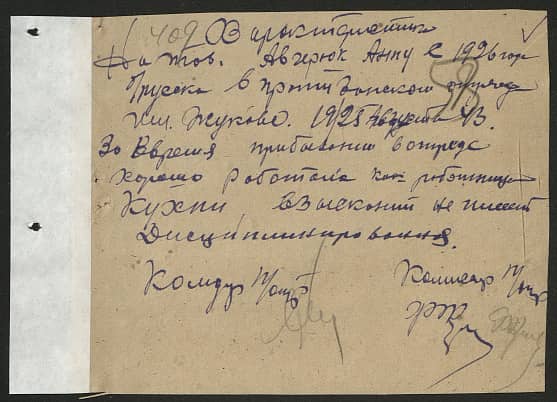 409 Характеристика
На тов. Авгерюк Анну с 1926 год
в партизанском отряде
им. Жукова. 1925 августа 43.
За Время прибывании в отряде
хорошо работала как работница
Кухни взысканий не имеет
Дисциплинирована.
Комдир Комисар